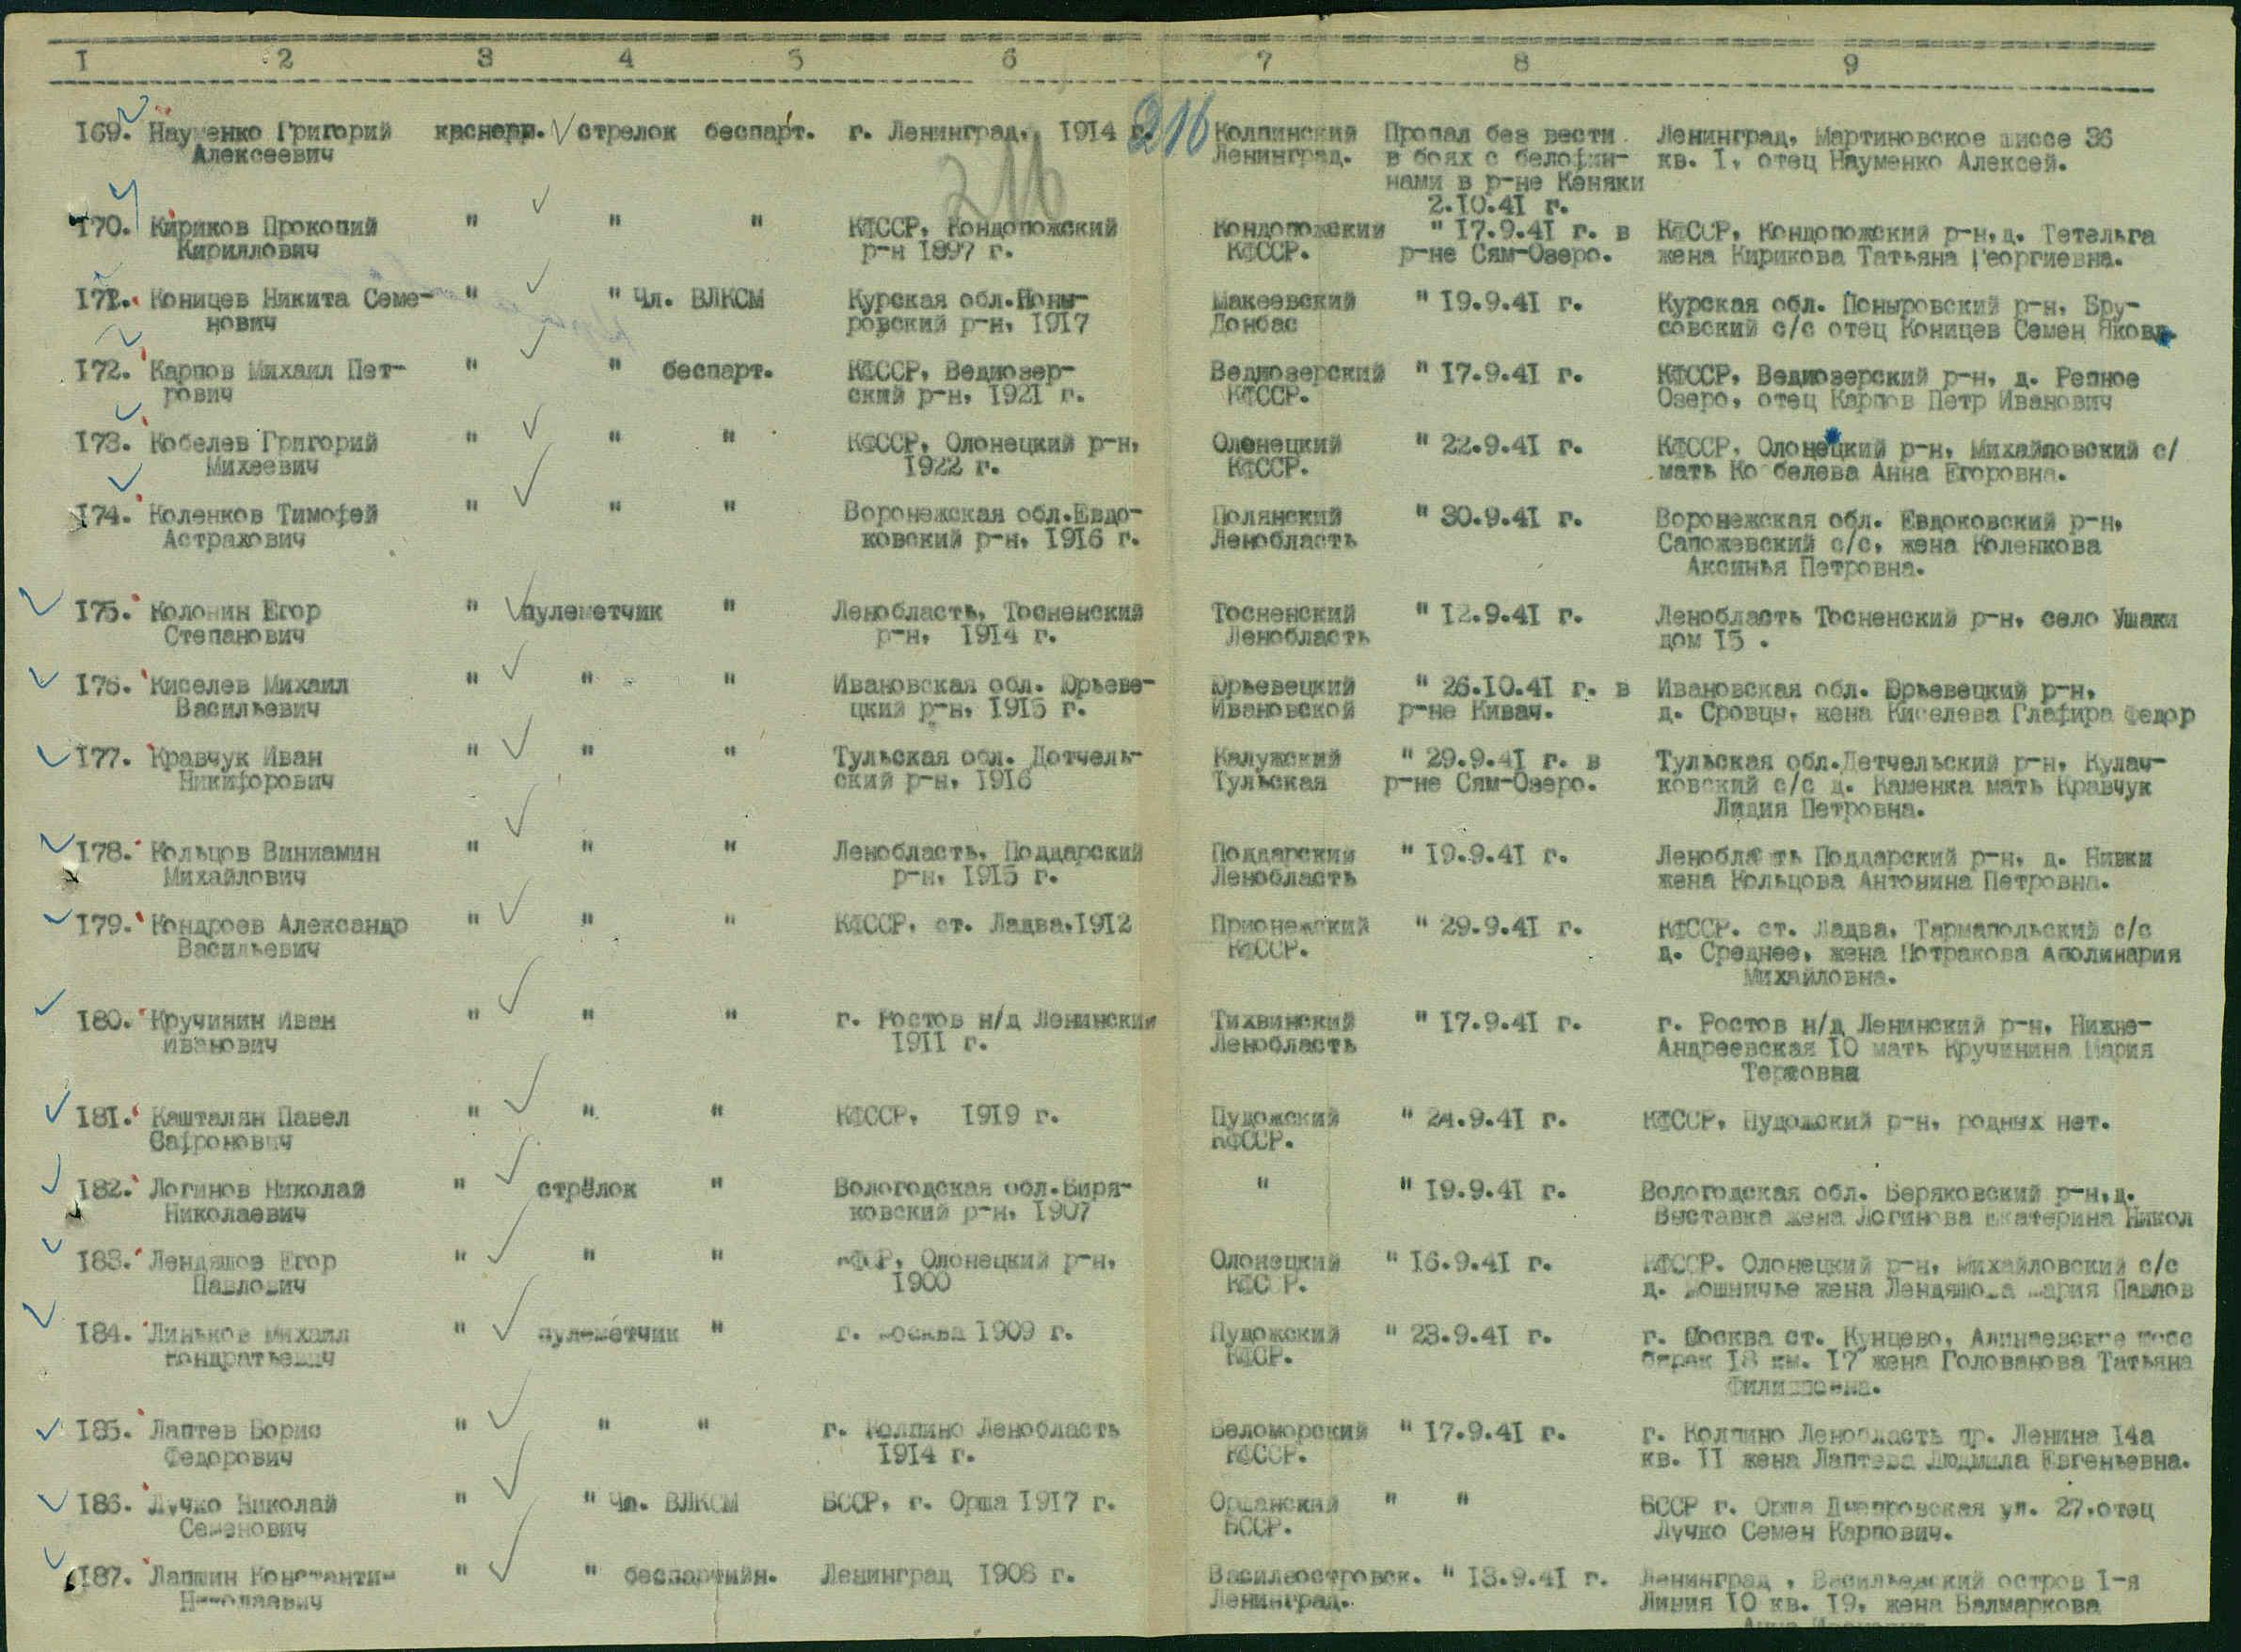 I 2 3 4 5 6 7 8 9
216
216
169. Науменко Григорий красноарм. стрелок беспарт. г. Ленинград, 1914 г. Колпинский Пропал без вести Ленинград, Мартиновское шиссе 36
Алексеевич Ленинград. в боях с белофин- кв. I, отец Науменко Алексей.
нами в р-не Кеняки
2.10.41 г.
170. Кириков Прокопий " " " КФССР, Кондопожский Кондопожский " 17.9.41 г. в КФССР, Кондопожский р-н, д. Тетельга
Кириллович р-н 1897 г. КФССР. р-не Сям-Озеро. жена Кирикова Татьяна Георгиевна.
171. Коницев Никита Семе- " " Чл. ВЛКСМ Курская обл. Поны- Макеевский " 19.9.41 г. Курская обл. Поныровский р-н, Бру-
нович ровский р-н, 1917 Донбас совский с/с отец Коницев Семен Яковл
172. Карпов Михаил Пет- " " беспарт. КФССР, Ведлозер- Ведлозерский " 17.9.41 г. КФССР, Ведлозерский р-н, д. Репное
рович ский р-н, 1921 г. КФССР. Озеро, отец Карпов Петр Иванович
173. Кобелев Григорий " " " КФССР, Олонецкий р-н, Олонецкий " 22.9.41 г. КФССР, Олонецкий р-н, Михайловский с/
Михеевич 1922 г. КФССР. мать Кобелева Анна Егоровна.
174. Коленков Тимофей " " " Воронежская обл. Евдо- Полянский " 30.9.41 г. Воронежская обл. Евдоковский р-н,
Астрахович ковский р-н, 1916 г. Ленобласть Сапожевский с/с, жена Коленкова
Аксинья Петровна.
175. Колонин Егор " пулеметчик " Ленобласть, Тосненский Тосненский " 12.9.41 г. Ленобласть Тосненский р-н, село Ушаки
Степанович р-н, 1914 г. Ленобласть дом 15 .
176. Киселев Михаил " " " Ивановская обл. Юрьеве- Юрьевецкий " 26.10.41 г. в Ивановская обл. Юрьевецкий р-н,
Васильевич цкий р-н, 1915 г. Ивановской р-не Кивач. д. Сровцы, жена Киселева Глафира Федор
177. Кравчук Иван " " " Тульская обл. Дотчель- Калужский " 29.9.41 г. в Тульская обл. Детчельский р-н, Кулач-
Никифорович ский р-н, 1916 Тульская р-не Сям-Озеро. ковский с/с д. Каменка мать Кравчук
Лидия Петровна.
178. Кольцов Виниамин " " " Ленобласть, Поддарский Поддарский " 19.9.41 г. Ленобласть Поддарский р-н, д. Нивки
Михайлович р-н, 1915 г. Ленобласть жена Кольцова Антонина Петровна.
179. Кондроев Александр " " " КФССР, ст. Ладва, 1912 Прионежский " 29.9.41 г. КФССР. ст. Ладва, Тармапольский с/с
Васильевич КФССР. д. Среднее, жена Потракова Аполинария
Михайловна.
180. Кручинин Иван " " " г. Ростов н/д Ленинский Тихвинский " 17.9.41 г. г. Ростов н/д Ленинский р-н, Нижне-
Иванович 1911 г. Ленобласть Андреевская 10 мать Кручинина Мария
181. Кашталян Павел " " " КФССР, 1919 г. Пудожский " 24.9.41 г. КФССР, Пудожский р-н, родных нет.
Сафронович КФССР.
182. Логинов Николай " стрелок " Вологодская обл. Биря- " " 19.9.41 г. Вологодская обл. Беряковский р-н, д.
Николаевич ковский р-н, 1907 Выставка жена Логинова Екатерина Никол
183. Лендяшов Егор " " " КФССР, Олонецкий р-н, Олонецкий " 16.9.41 г. КФССР. Олонецкий р-н, Михайловский с/с
Павлович 1900 КФССР. д. жена Лендяшова Мария Павлов
184. Линьков Михаил " пулеметчик " г. Москва 1909 г. Пудожский " 23.9.41 г. г. Москва ст. Кунцево,
Кондратьевич КФСР. барак 18 км. 17 жена Голованова Татьяна
Филипповна.
185. Лаптев Борис " " " г. Колпино Ленобласть Беломорский " 17.9.41 г. г. Колпино Ленобласть пр. Ленина 14а
Федорович 1914 г. КФССР. кв. II жена Лаптева Людмила Евгеньевна.
186. Лучко Николай " " Чл. ВЛКСМ БССР, г. Орша 1917 г. Оршанский " " БССР г. Орша Днепровская ул. 27, отец
Семенович БССР. Лучко Семен Карпович.
187. Лапшин Константин " " беспартийн. Ленинград 1908 г. Василеостровск. " 13.9.41 г. Ленинград , Васильевский остров 1-я
Николаевич Ленинград. Линия 10 кв. 19, жена Валмаркова